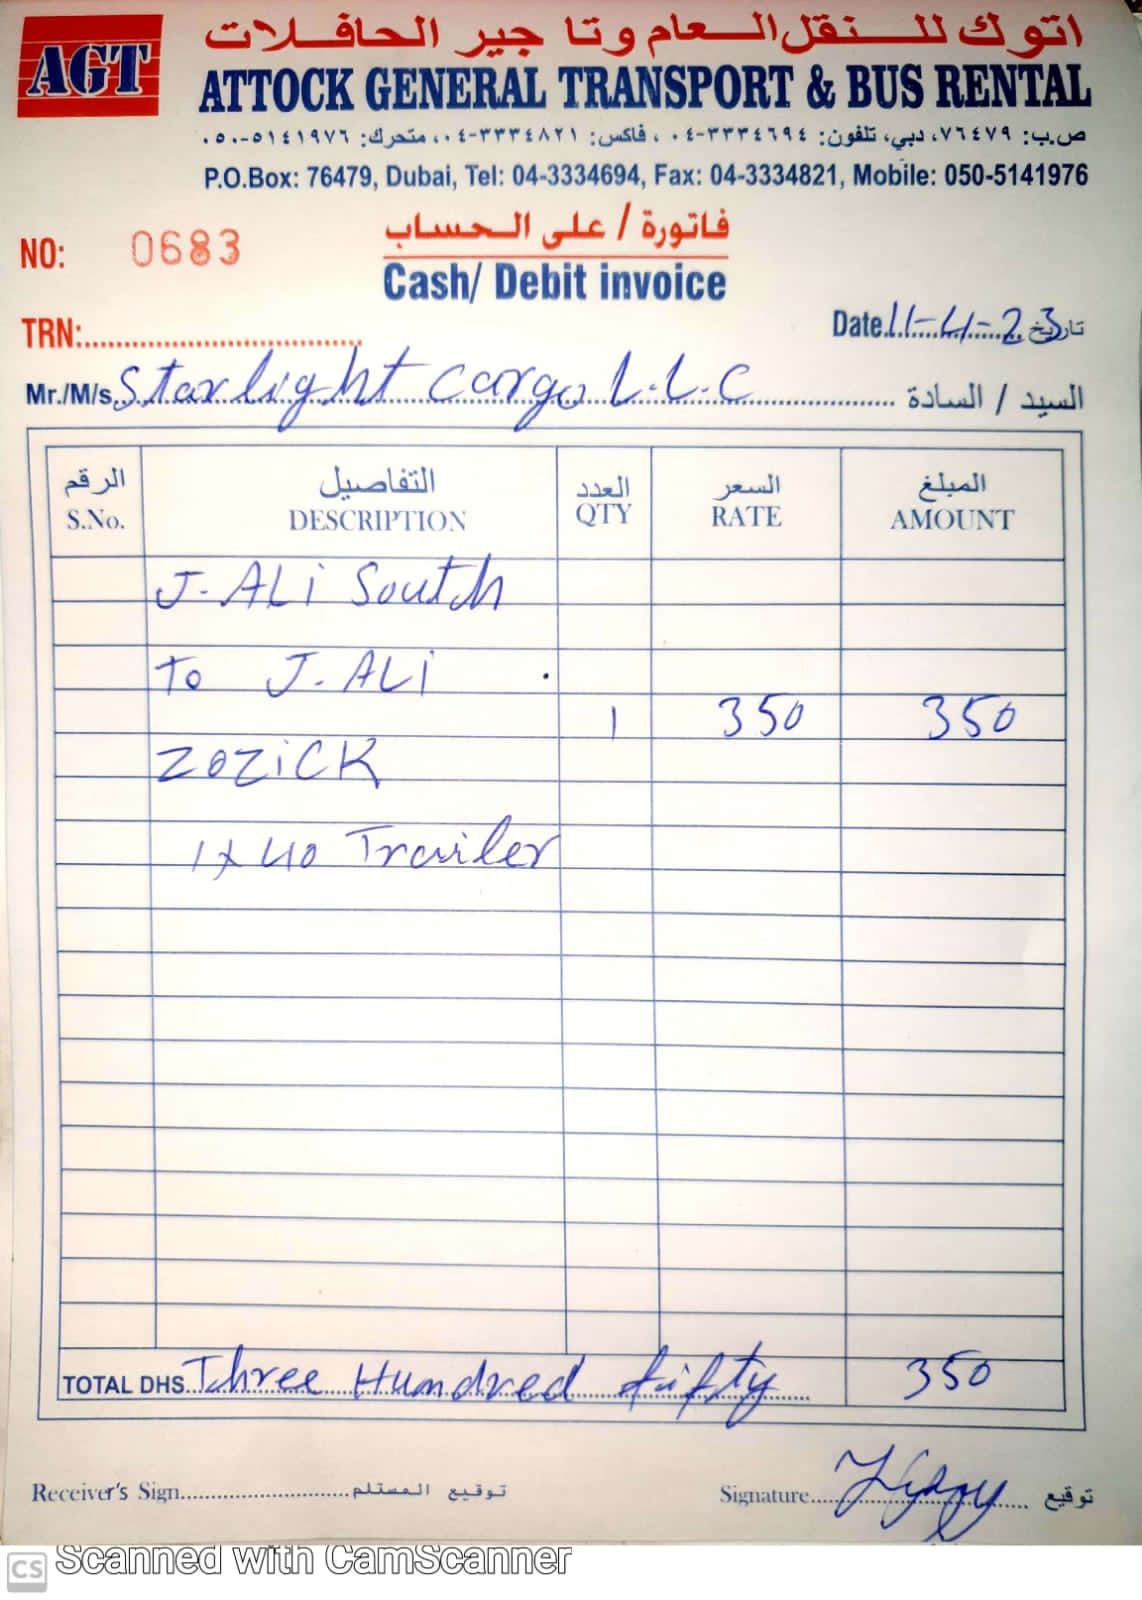 AGT
اتوك للنقل العام وتاجير الحافلات
ATTOCK GENERAL TRANSPORT & BUS RENTAL
ص.ب: ٧٦٤٧٩، دبي، تلفون: ٣٣٣٤٦٩٤-٠٤، فاكس: ٣٣٣٤٨٢١-٠٤، متحرك: ٥١٤١٩٧٦-٠٥٠
P.O.Box: 76479, Dubai, Tel: 04-3334694, Fax: 04-3334821, Mobile: 050-5141976
فاتورة / على الحساب
NO: 0683
Cash/ Debit invoice
TRN:
Date 11-4-23 تاريخ
Mr./M/s. Starlight Cargo L.L.C السيد / السادة
الرقم التفاصيل العدد السعر المبلغ
S.No. DESCRIPTION QTY RATE AMOUNT
J-ALi South
To J-ALi
1 350 350
ZOZiCK
1x40 Trailer
TOTAL DHS. Three Hundred fifty 350
Receiver's Sign توقيع المستلم Signature توقيع
CS Scanned with CamScanner